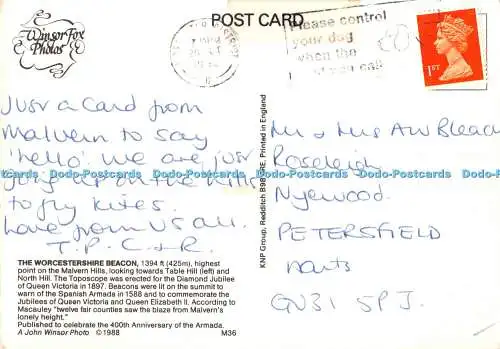 POST CARD
Winsor Fox
Photos
Please control
your dog
when the
1ST
Just a card from
Malvern to say
'hello'. We are just
going up on the hills
to fly kites.
Love from us all.
T. P. C + R.
THE WORCESTERSHIRE BEACON, 1394 ft (425m), highest
point on the Malvern Hills, looking towards Table Hill (left) and
North Hill. The Toposcope was erected for the Diamond Jubilee
of Queen Victoria in 1897. Beacons were lit on the summit to
warn of the Spanish Armada in 1588 and to commemorate the
Jubilees of Queen Victoria and Queen Elizabeth II. According to
Macauley "twelve fair counties saw the blaze from Malvern's
lonely height."
Published to celebrate the 400th Anniversary of the Armada.
A John Winsor Photo ©1988 M36
KNP Group, Redditch B98 Printed in England
Mr & Mrs AW Bleach
Roseleigh
Nyewood
PETERSFIELD
Hants
GU31 5PJ.
Dado's Postcards Dado's Postcards Dado's Postcards Dado's Postcards